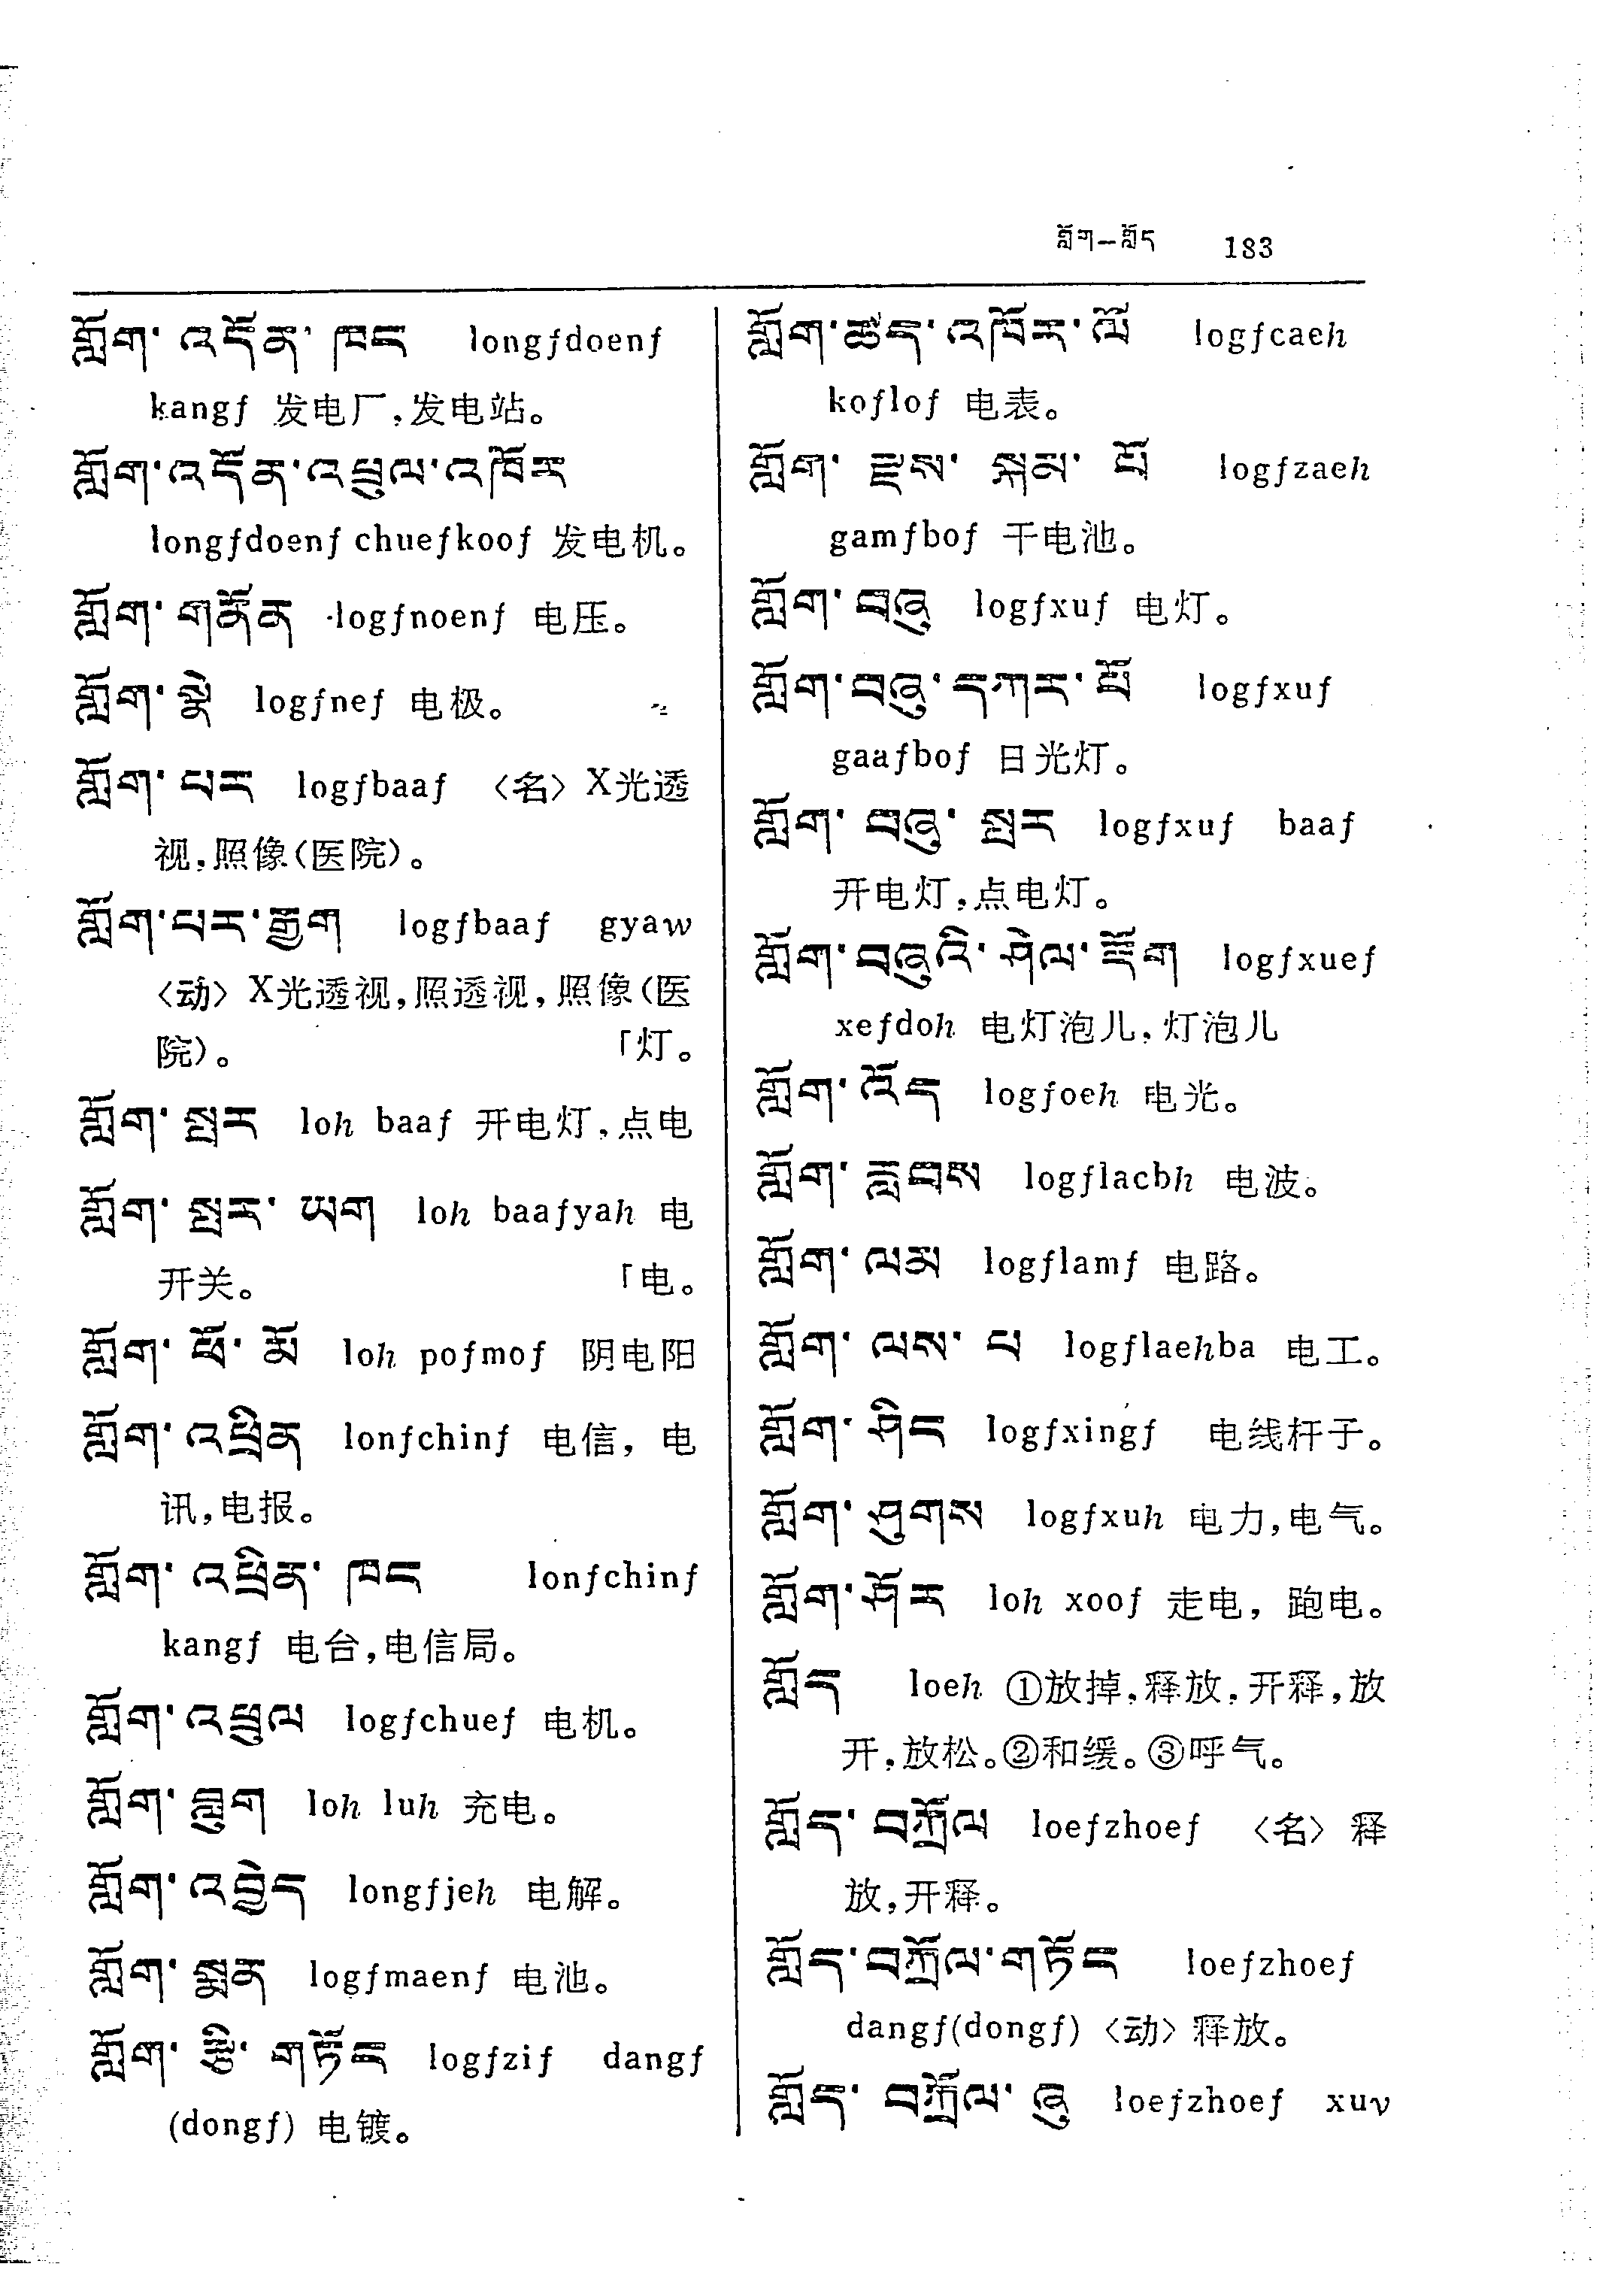 གློག—གློད 183
གློག་ འདོན་ ཁང longfdoenf
kangf 发电厂,发电站。
གློག་འདོན་འཕྲུལ་འཁོར
longfdoenf chuefkoof 发电机。
གློག་ གནོན logfnoenf 电压。
གློག་ སྣེ logfnef 电极。
གློག་ པར logfbaaf 〈名〉X光透
视,照像(医院)。
གློག་པར་རྒྱག logfbaaf gyaw
〈动〉X光透视,照透视,照像(医
院)。 「灯。
གློག་ སྤར loh baaf 开电灯,点电
གློག་ སྤར་ ཡག loh baafyah 电
开关。 「电。
གློག་ ཕོ་ མོ loh pofmof 阴电阳
གློག་ འཕྲིན lonfchinf 电信, 电
讯,电报。
གློག་ འཕྲིན་ ཁང lonfchinf
kangf 电台,电信局。
གློག་འཕྲུལ logfchuef 电机。
གློག་ བླུག loh luh 充电。
གློག་འབྱེད longfjeh 电解。
གློག་ སྨན logfmaenf 电池。
གློག་ རྩི་ གཏོང logfzif dangf
(dongf) 电镀。
གློག་ཚད་འཁོར་ལོ logfcaeh
koflof 电表。
གློག་ རྫས་ སྐམ་ པོ logfzaeh
gamfbof 干电池。
གློག་ བཞུ logfxuf 电灯。
གློག་བཞུ་དཀར་པོ logfxuf
gaafbof 日光灯。
གློག་ བཞུ་ སྤར logfxuf baaf
开电灯,点电灯。
གློག་བཞུའི་ ཤེལ་རྡོག logfxuef
xefdoh 电灯泡儿,灯泡儿
གློག་འོད logfoeh 电光。
གློག་ རླབས logflacbh 电波。
གློག་ ལམ logflamf 电路。
གློག་ ལས་ པ logflaehba 电工。
གློག་ ཤིང logfxingf 电线杆子。
གློག་ ཤུགས logfxuh 电力,电气。
གློག་ཤོར loh xoof 走电, 跑电。
གློད loeh ①放掉,释放,开释,放
开,放松。②和缓。③呼气。
གློད་ བཀྲོལ loefzhoef 〈名〉释
放,开释。
གློད་བཀྲོལ་གཏོང loefzhoef
dangf(dongf) 〈动〉释放。
གློད་ བཀྲོལ་ ཞུ loefzhoef xuv